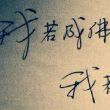 我若成佛
我若